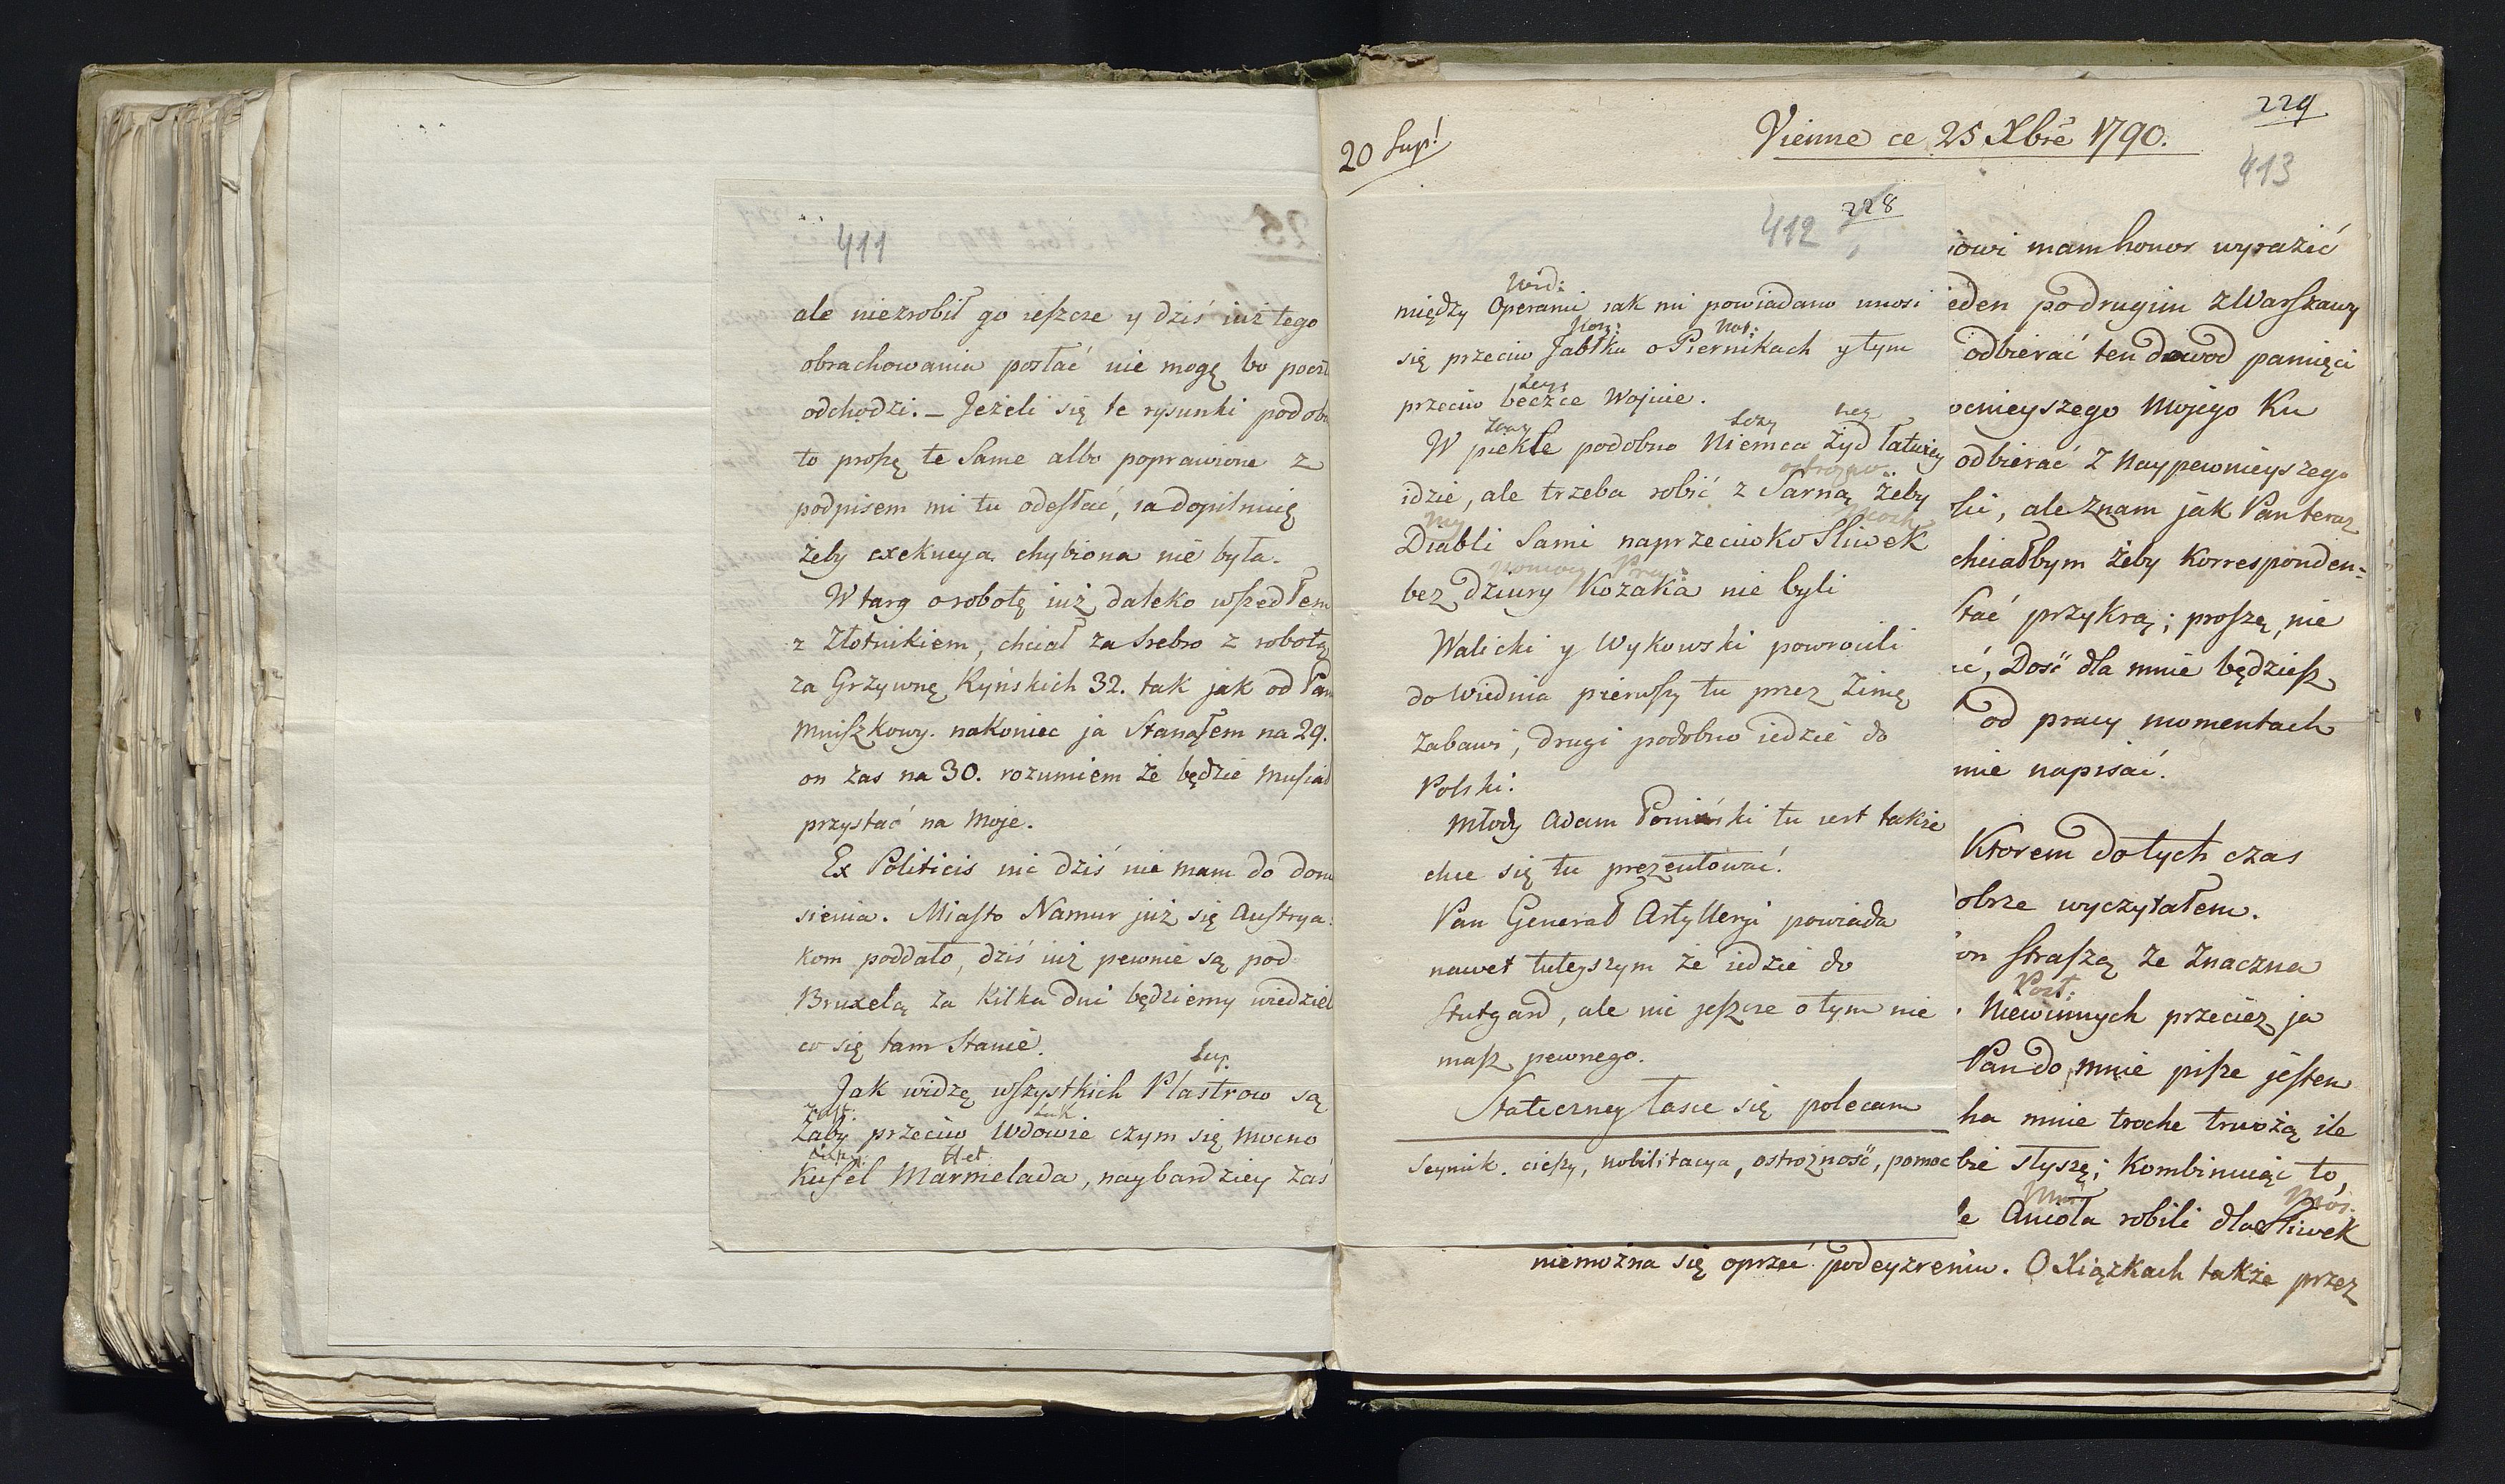 411
ale niezrobił go ieszcze y dziś iuż tego
obrachowania posłać nie mogę bo poczt
odchodzi. – Jeżeli się te rysunki podob
to proszę te same albo poprawione z
podpisem mi tu odesłać, ia dopilnuię
żeby exekucya chybiona nie była.
W targ o robotę iuż daleko wszedłem
z Złotnikiem, chciał za srebro z robotą
za Grzywnę Ryńskich 32. tak jak od Pan
Mniszkowy. nakoniec ja stanąłem na 29.
on zas na 30. rozumiem że będzie musiał
przystać na moje.
Ex Politicis nic dziś nie mam do don
sienia. Miasto Namur już się Austrya:
kom poddało, dziś iuż pewnie są pod
Bruxelą za kilka dni będziemy wiedziel
co się tam stanie.
Sup.
Jak widzę wszystkich Plastrow są
Luk
Żaby przeciw Wdowie czym się mocno
Het
Kufel Marmelada, naybardziey zaś
20 Sup!
Vienne ce 25 Xbre 1790.
229
413
412 228
Wid:
między Operami iak mi powiadano unosi
Kon: Not:
się przeciw Jabłku o Piernikach y tym
przeciw beczce Wojnie.
W piekle podobno Niemca Żyd łatwiey
idzie, ale trzeba robić z Sarną żeby
My
Diabli sami naprzeciwko Sliwek
pomocy Pru:
bez dziury Kozaka nie byli
Walicki y Wykowski powrocili
do Wiednia pierwszy tu przez Zimę
zabawi, drugi podobno iedzie do
Polski.
Młody Adam Poniński tu iest także
chce się tu prezentować.
Pan Generał Artylleryi powiada
nawet tuteyszym że iedzie do
Stutgard, ale nic jeszcze o tym nie
masz pewnego.
Stateczney łasce się polecam
Seymik. cieszy, nobilitacya, ostrożność, pomoc
iowi mam honor wyrazić
eden po drugim z Warszawy
odbierać ten dowod pamięci
ocnieyszego Mojego Ku
odbierać z naypewnieyszego
ale znam jak Pan teraz
chciałbym żeby Korresponden=
stać przykrą; proszę, nie
ić, Dość dla mnie będziesz
od pracy momentach
mie napisać.
Ktorem dotych czas
obrze wyczytałem.
on straszą że znaczna
Post.
Niewinnych przecież ja
Pan do mnie pisze jestem
ha mnie troche trwożą ile
bie słyszę; Kombinuiąc to,
Mos.
le Anioła robili dla Sliwek
niemożna się oprzeć podeyzreniu. O Xiążkach także przez